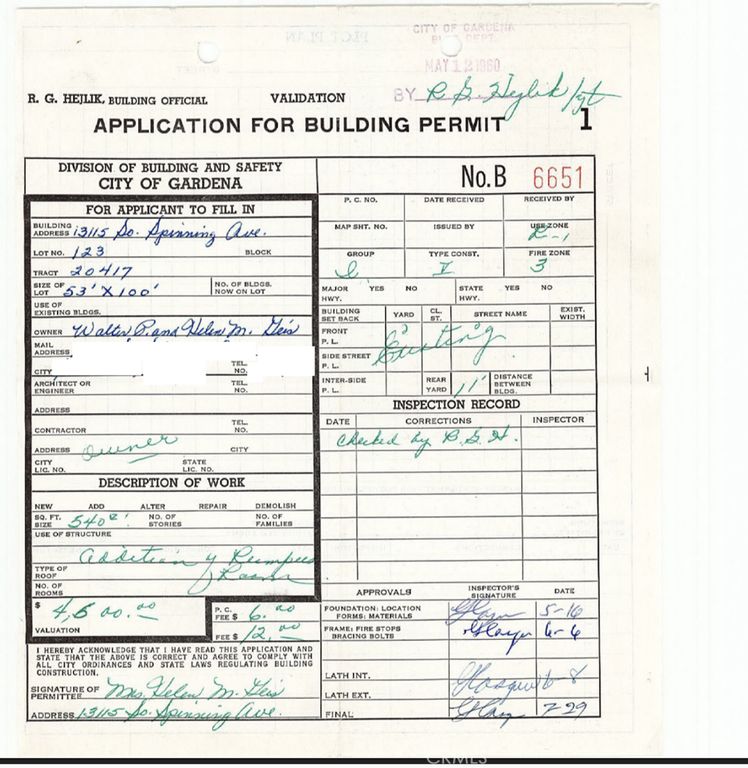 CITY OF GARDENA
BLDG. DEPT.
MAY 12 1960
R. G. HEJLIK, BUILDING OFFICIAL VALIDATION BY R G Hejlik/gt
APPLICATION FOR BUILDING PERMIT 1
DIVISION OF BUILDING AND SAFETY
CITY OF GARDENA
No. B 6651
FOR APPLICANT TO FILL IN
BUILDING ADDRESS 13115 So. Spinning Ave.
LOT NO. 123 BLOCK
TRACT 20417
SIZE OF LOT 53' X 100' NO. OF BLDGS. NOW ON LOT
USE OF EXISTING BLDGS.
OWNER Walter P. and Helen M. Geis
MAIL ADDRESS
CITY TEL. NO.
ARCHITECT OR ENGINEER TEL. NO.
ADDRESS
CONTRACTOR TEL. NO.
ADDRESS owner CITY
CITY LIC. NO. STATE LIC. NO.
DESCRIPTION OF WORK
NEW ADD ALTER REPAIR DEMOLISH
SQ. FT. SIZE 540 NO. OF STORIES NO. OF FAMILIES
USE OF STRUCTURE
Addition of Rumpus
Room
TYPE OF ROOF
NO. OF ROOMS
$ 4,500.00 VALUATION
P. C. FEE $ 6.00
FEE $ 12.00
I HEREBY ACKNOWLEDGE THAT I HAVE READ THIS APPLICATION AND
STATE THAT THE ABOVE IS CORRECT AND AGREE TO COMPLY WITH
ALL CITY ORDINANCES AND STATE LAWS REGULATING BUILDING
CONSTRUCTION.
SIGNATURE OF PERMITTEE Mrs. Helen M. Geis
ADDRESS 13115 So. Spinning Ave.
P. C. NO. DATE RECEIVED RECEIVED BY
MAP SHT. NO. ISSUED BY USE ZONE R-1
GROUP TYPE CONST. V FIRE ZONE 3
MAJOR HWY. YES NO STATE HWY. YES NO
BUILDING SET BACK YARD CL. ST. STREET NAME EXIST. WIDTH
FRONT P. L. Existing
SIDE STREET P. L.
INTER-SIDE P. L. REAR YARD 11' DISTANCE BETWEEN BLDG.
INSPECTION RECORD
DATE CORRECTIONS INSPECTOR
Checked by R. G. H.
APPROVALS INSPECTOR'S SIGNATURE DATE
FOUNDATION: LOCATION FORMS: MATERIALS 5-16
FRAME: FIRE STOPS BRACING BOLTS 6-6
LATH INT. 6-8
LATH EXT.
FINAL 7-29
CRMLS